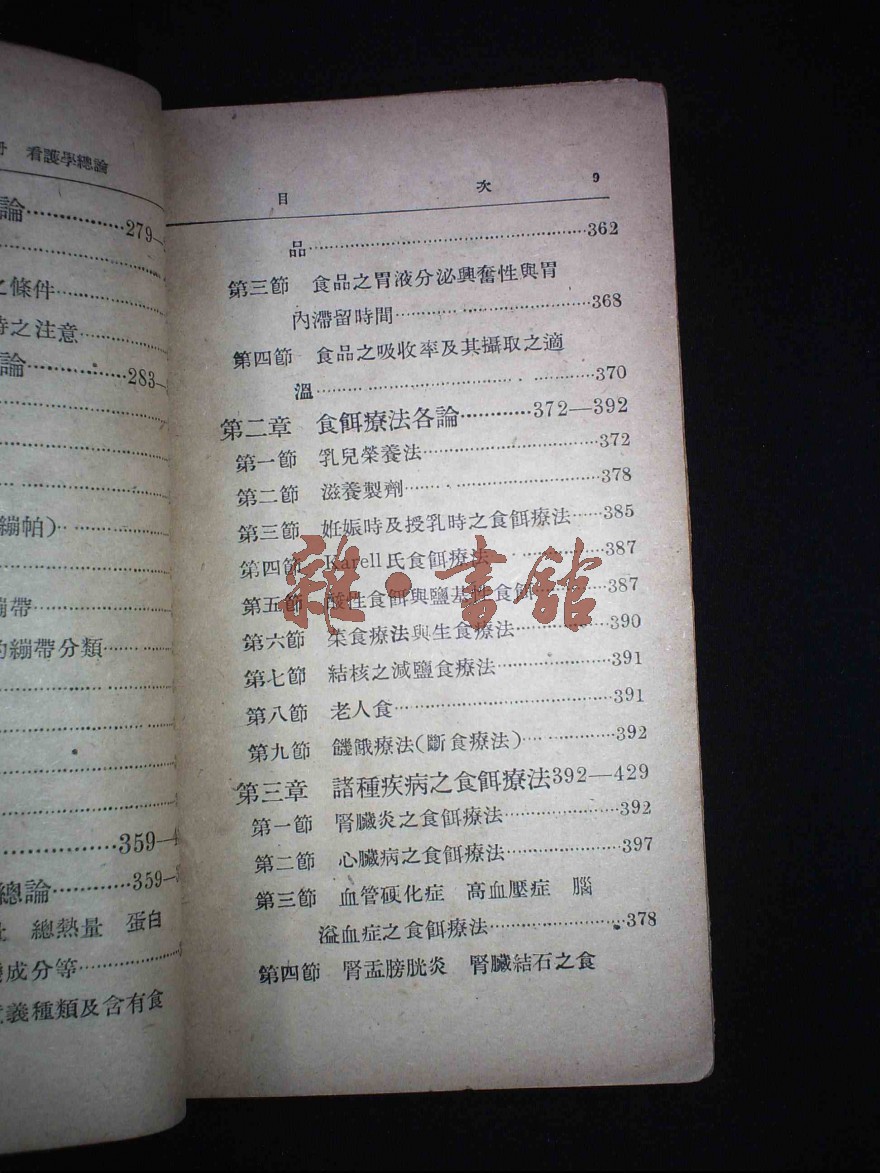 看護學總論
論…………279—
之條件
時之注意
論…………283—
繃帕)
繃帶
的繃帶分類
359—
總論…………359—
總熱量 蛋白
成分等
義種類及含有食
目 次 9
品…………362
第三節 食品之胃液分泌興奮性與胃
內滯留時間…………368
第四節 食品之吸收率及其攝取之適
溫…………370
第二章 食餌療法各論…………372—392
第一節 乳兒榮養法…………372
第二節 滋養製劑…………378
第三節 妊娠時及授乳時之食餌療法……385
第四節 Karell氏食餌療法…………387
第五節 酸性食餌與鹽基性食餌……387
第六節 菜食療法與生食療法…………390
第七節 結核之減鹽食療法…………391
第八節 老人食…………391
第九節 饑餓療法(斷食療法)…………392
第三章 諸種疾病之食餌療法392—429
第一節 腎臟炎之食餌療法…………392
第二節 心臟病之食餌療法…………397
第三節 血管硬化症 高血壓症 腦
溢血症之食餌療法…………378
第四節 腎盂膀胱炎 腎臟結石之食
雜·書館